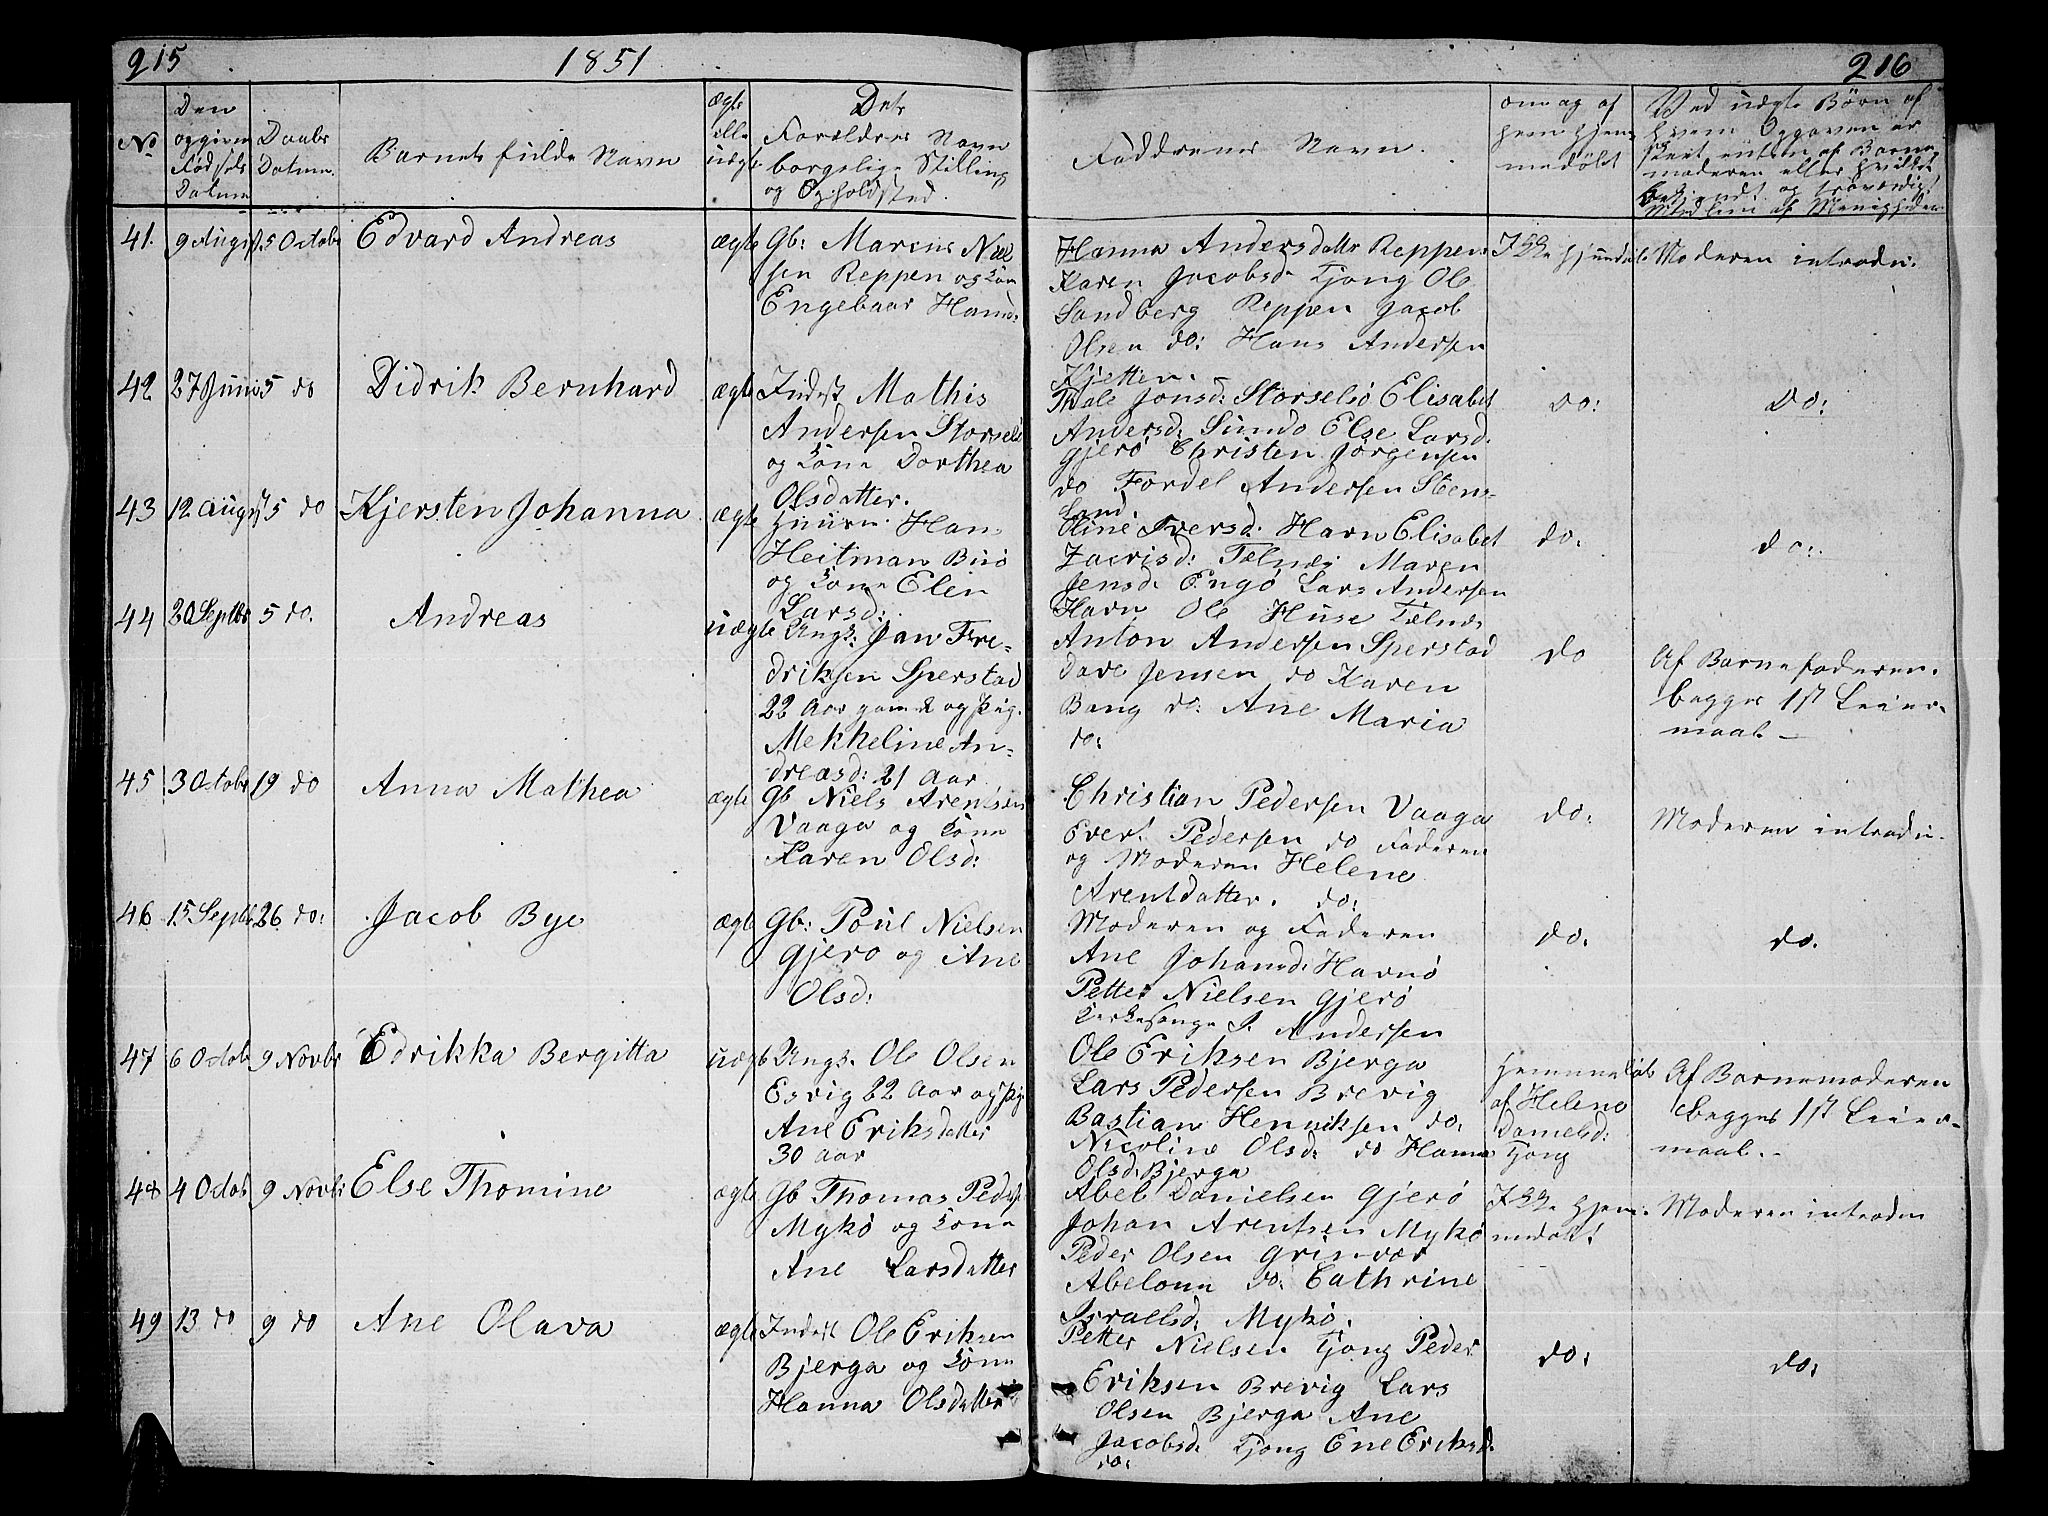 215
1851
216
No
Den
opgivne
Fødsels
Datum
Daabs
Datum.
Barnets fulde Navn
ægte
elle
uægte
Dets
Forældres Navn
borgelige Stilling
og Opholdsted.
Faddrenes Navn.
om og af
hvem hjem
medøbt
Ved uægte Børn af
hvem Opgaven er
skeet enten af Barne
moderen eller hvilket
bekjendt og troværdigt
Medlem af Menigheden
41. 9 August 5 Octobr Edvard Andreas ægte Gb: Marcus Niel
sen Reppen og Kone
Engebaar Hansd:
Hanna Andersdattr Reppen.
Karen Jacobsd. Tjong Ole
Sandberg Reppen Jacob
Olsen do: Hans Andersen
Kjetten.
Ikke hjemdøbt Moderen introdu.
42. 27 Juni 5 do Didrik Bernhard ægte Inderst Mathis
Andersen Storselø
og Kone Dorthea
Olsdatter.
Thale Jonsd: Storselø Elisabet
Andersd: Sundø Else Larsd.
Gjerø Christen Jørgensen
do Fordel Andersen Steens
land.
do: do:
43 12 August 5 do Kjersten Johanna ægte Huusm. Hans
Heitman Buø
og Kone Elen
Larsd:
Oline Iversd. Havn Elisabet
Zacrisd: Telnes Maren
Jensd. Engø Lars Andersen
Havn Ole Huse Telnes
do. do:
44 20 Septbr 5 do. Andreas uægte Ungk. Jan Fre-
driksen Sperstad
22 Aar gaml og Pig.
Mekkeline An-
dreasd: 21 Aar
Anton Andersen Sperstad
Dare Jensen do Karen
Bang do: Ane Maria
do:
do Af Barnefaderen.
begges 1st Leier-
maal –
45 3 Octobr 19 do Anna Mathea ægte Gb Niels Arentsen
Vaaga og Kone
Karen Olsd:
Christian Pedersen Vaaga
Evert Pedersen do Faderen
og Moderen Helene
Arentdatter. do:
do: Moderen introdu.
46 15 Septb 26 do: Jacob Bye ægte Gb: Poul Nielsen
Gjerø og Ane
Olsd:
Moderen og Faderen
Ane Johansd: Havnø
Petter Nielsen Gjerø
Kirkesange J. Andersen
do. do.
47 6 Octob 9 Novbr Edrikka Bergitta uægt Ungk. Ole Olsen
Esvig 22 Aar og Pig
Ane Eriksdatter
30 Aar
Ole Eriksen Bjerga
Lars Pedersen Brevig
Bastian Henriksen do.
Nicoline Olsd: do Hanna
Olsd: Bjerga
Hjemmedøbt
af Helene
Danielsd:
Tjong
Af Barnemoderen
begges 1st Leier-
maal.-
48 4 Octob 9 Novbr Else Thomine ægte Gb Thomas Peders
Mykø og Kone
Ane Larsdatter
Abel Danielsen Gjerø
Johan Arentsen Mykø
Peder Olsen Grinvær
Abelona do: Cathrine
Israelsd. Mykø.
Ikke hjem-
medøbt
Moderen introdu
49 13 do 9 do Ane Olava ægte Inderst Ole Eriksen
Bjerga og Kone
Hanna Olsdatter
Petter Nielsen Tjong Peder
Eriksen Brevig Lars
Olsen Bjerga Ane
Jacobsd. Tjong Ene Eriksd.
do:
do: do: